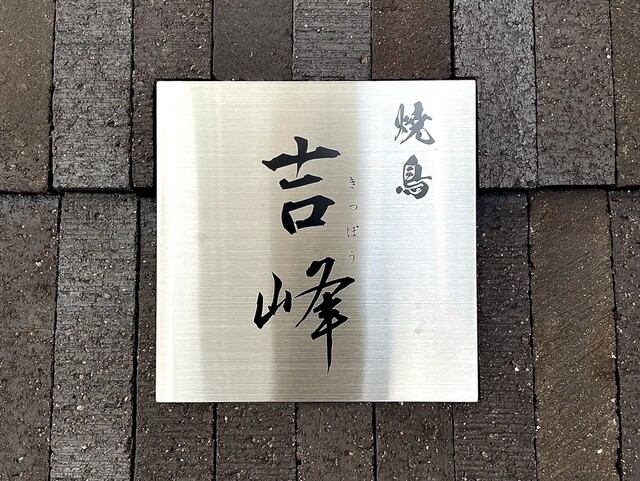 焼鳥
吉峰
きっぽう